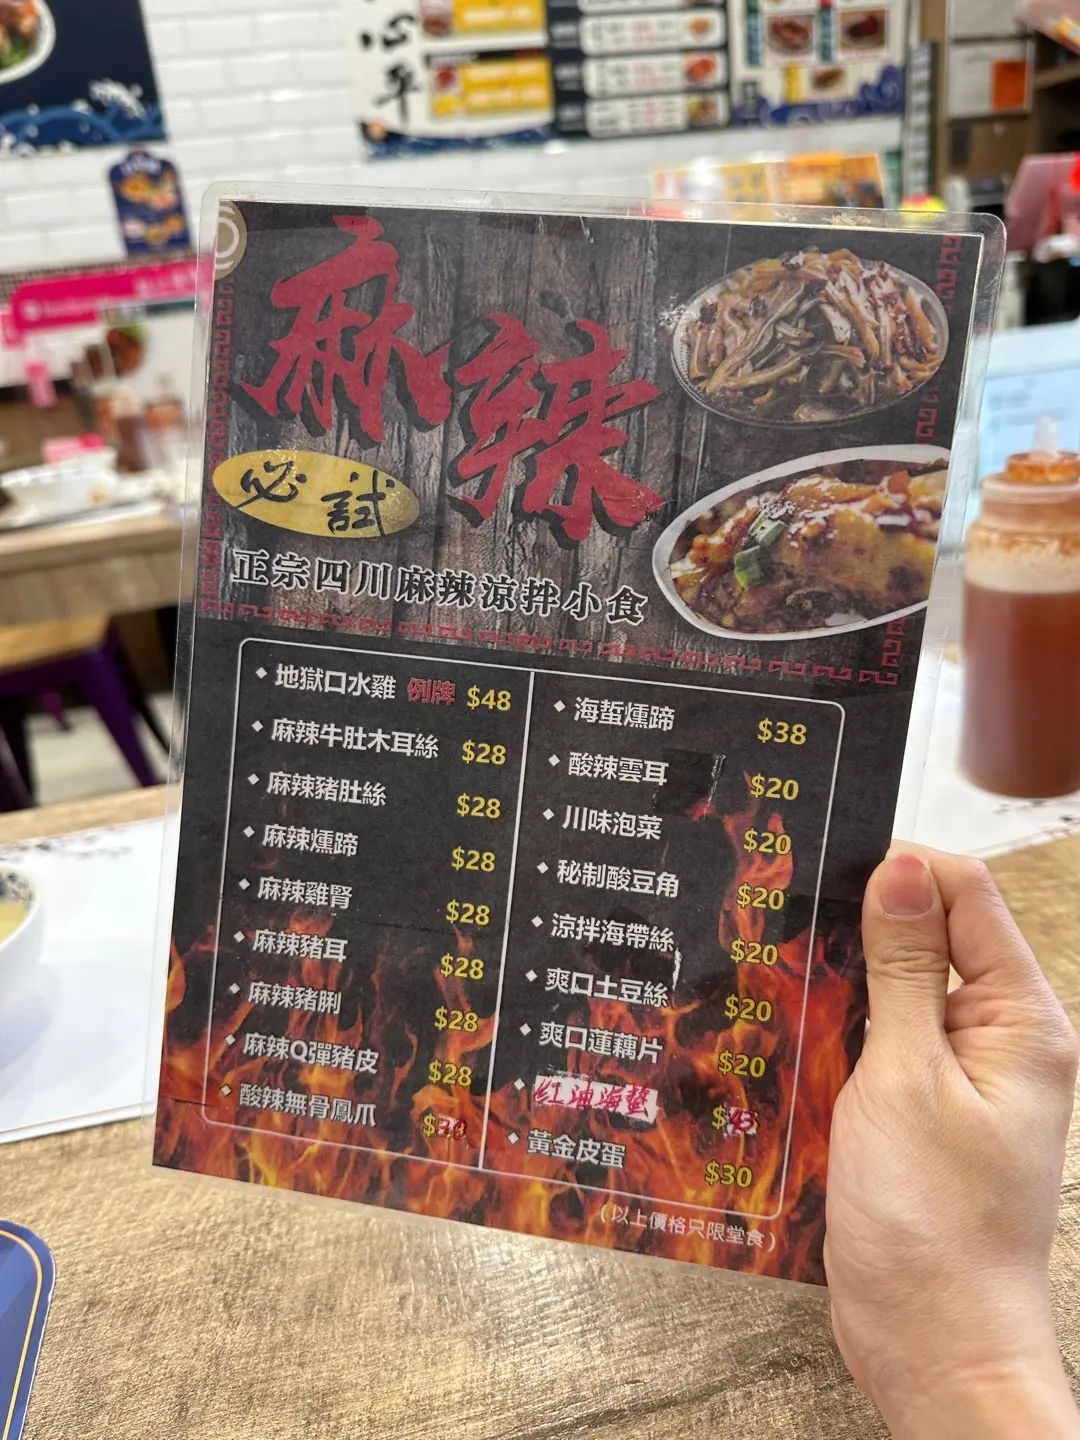 心
平
麻辣
必試
正宗四川麻辣涼拌小食
地獄口水雞 例牌 $48
麻辣牛肚木耳絲 $28
麻辣豬肚絲 $28
麻辣燻蹄 $28
麻辣雞腎 $28
麻辣豬耳 $28
麻辣豬脷 $28
麻辣Q彈豬皮 $28
酸辣無骨鳳爪 $38
海蜇燻蹄 $38
酸辣雲耳 $20
川味泡菜 $20
秘制酸豆角 $20
涼拌海帶絲 $20
爽口土豆絲 $20
爽口蓮藕片 $20
红油海蜇 $43
黃金皮蛋 $30
(以上價格只限堂食)